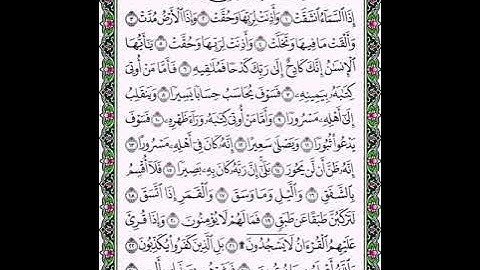 إِذَا ٱلسَّمَآءُ ٱنشَقَّتْ ١ وَأَذِنَتْ لِرَبِّهَا وَحُقَّتْ ٢ وَإِذَا ٱلْأَرْضُ مُدَّتْ ٣
وَأَلْقَتْ مَا فِيهَا وَتَخَلَّتْ ٤ وَأَذِنَتْ لِرَبِّهَا وَحُقَّتْ ٥ يَٰٓأَيُّهَا
ٱلْإِنسَٰنُ إِنَّكَ كَادِحٌ إِلَىٰ رَبِّكَ كَدْحًا فَمُلَٰقِيهِ ٦ فَأَمَّا مَنْ أُوتِيَ
كِتَٰبَهُۥ بِيَمِينِهِۦ ٧ فَسَوْفَ يُحَاسَبُ حِسَابًا يَسِيرًا ٨ وَيَنقَلِبُ
إِلَىٰٓ أَهْلِهِۦ مَسْرُورًا ٩ وَأَمَّا مَنْ أُوتِيَ كِتَٰبَهُۥ وَرَآءَ ظَهْرِهِۦ ١٠ فَسَوْفَ
يَدْعُوا۟ ثُبُورًا ١١ وَيَصْلَىٰ سَعِيرًا ١٢ إِنَّهُۥ كَانَ فِىٓ أَهْلِهِۦ مَسْرُورًا ١٣
إِنَّهُۥ ظَنَّ أَن لَّن يَحُورَ ١٤ بَلَىٰٓ إِنَّ رَبَّهُۥ كَانَ بِهِۦ بَصِيرًا ١٥ فَلَآ أُقْسِمُ
بِٱلشَّفَقِ ١٦ وَٱلَّيْلِ وَمَا وَسَقَ ١٧ وَٱلْقَمَرِ إِذَا ٱتَّسَقَ ١٨
لَتَرْكَبُنَّ طَبَقًا عَن طَبَقٍ ١٩ فَمَا لَهُمْ لَا يُؤْمِنُونَ ٢٠ وَإِذَا قُرِئَ
عَلَيْهِمُ ٱلْقُرْءَانُ لَا يَسْجُدُونَ ۩ ٢١ بَلِ ٱلَّذِينَ كَفَرُوا۟ يُكَذِّبُونَ ٢٢